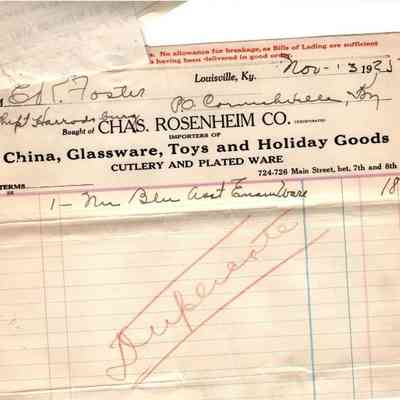 s. No allowance for breakage, as Bills of Lading are sufficient
s having been delivered in good order.
Louisville, Ky. Nov - 13 1925
Foster
Ship Harrodsburg P.O. Cornishville, Ky
Bought of CHAS. ROSENHEIM CO. INCORPORATED
IMPORTERS OF
China, Glassware, Toys and Holiday Goods
CUTLERY AND PLATED WARE
724-726 Main Street, bet. 7th and 8th
TERMS
1 - Blu Asst Enamlware 18
Duplicate